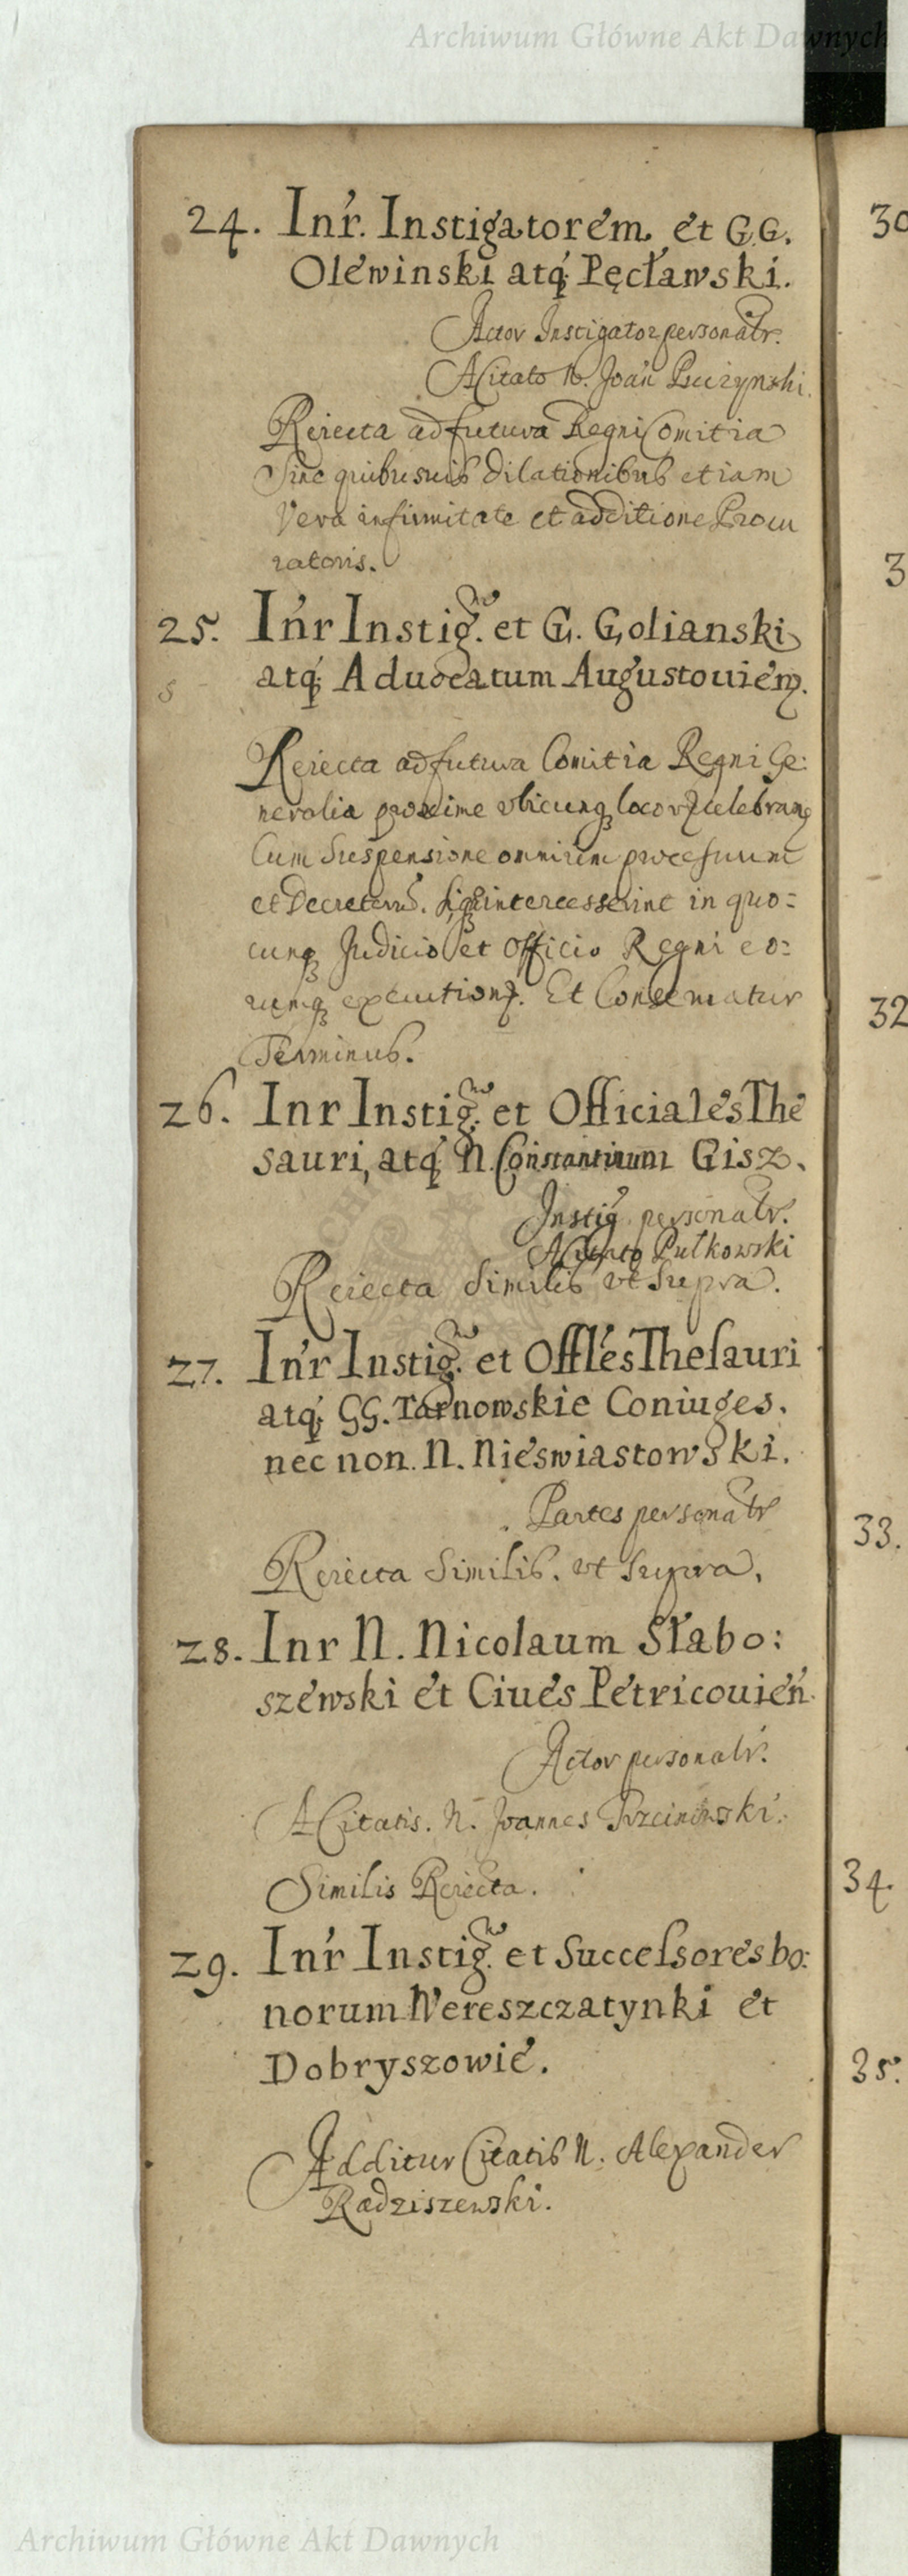 Archiwum Główne Akt Dawnych
24. Inr. Instigatorem et G.G.
Olewinski atq; Pęcławski.
Actor Instigator personatr.
A Citato N. Joan Puczynski.
Reiecta ad futura Regni Comitia
Sine quibusuis dilationibus etiam
Vera infirmitate et additione Procu
ratoris.
25. Inr Instig. et G. Golianski
5
atq; Aduocatum Augustouien.
Reiecta ad futura Comitia Regni Ge:
neralia proxime vbicunq; locor celebran
Cum Suspensione omnium processuum
et Decretoru. siq intercesserint in quo:
cunq; Judicio et Officio Regni eo:
rumq; execution. Et Conseruatur
Terminus.
26. Inr Instig. et Officiales The
sauri, atq; N. Constantinum Gisz.
Instig personatr.
A Citato Pułkowski
Reiecta Similis vt supra.
27. Inr Instig. et Offles Thesauri
atq; GG. Tarnowskie Coniuges.
nec non. N. Nieswiastowski.
Partes personatr
Reiecta Similis. vt supra.
28. Inr N. Nicolaum Słabo:
szewski et Ciues Petricouien.
Actor personalr.
A Citatis. N. Joannes
Similis Reiecta.
29. Inr Instig. et Successores bo:
norum Wereszczatynki et
Dobryszowie.
Additur Citatis N. Alexander
Radziszewski.
30
3
32
33.
34.
35.
Archiwum Główne Akt Dawnych